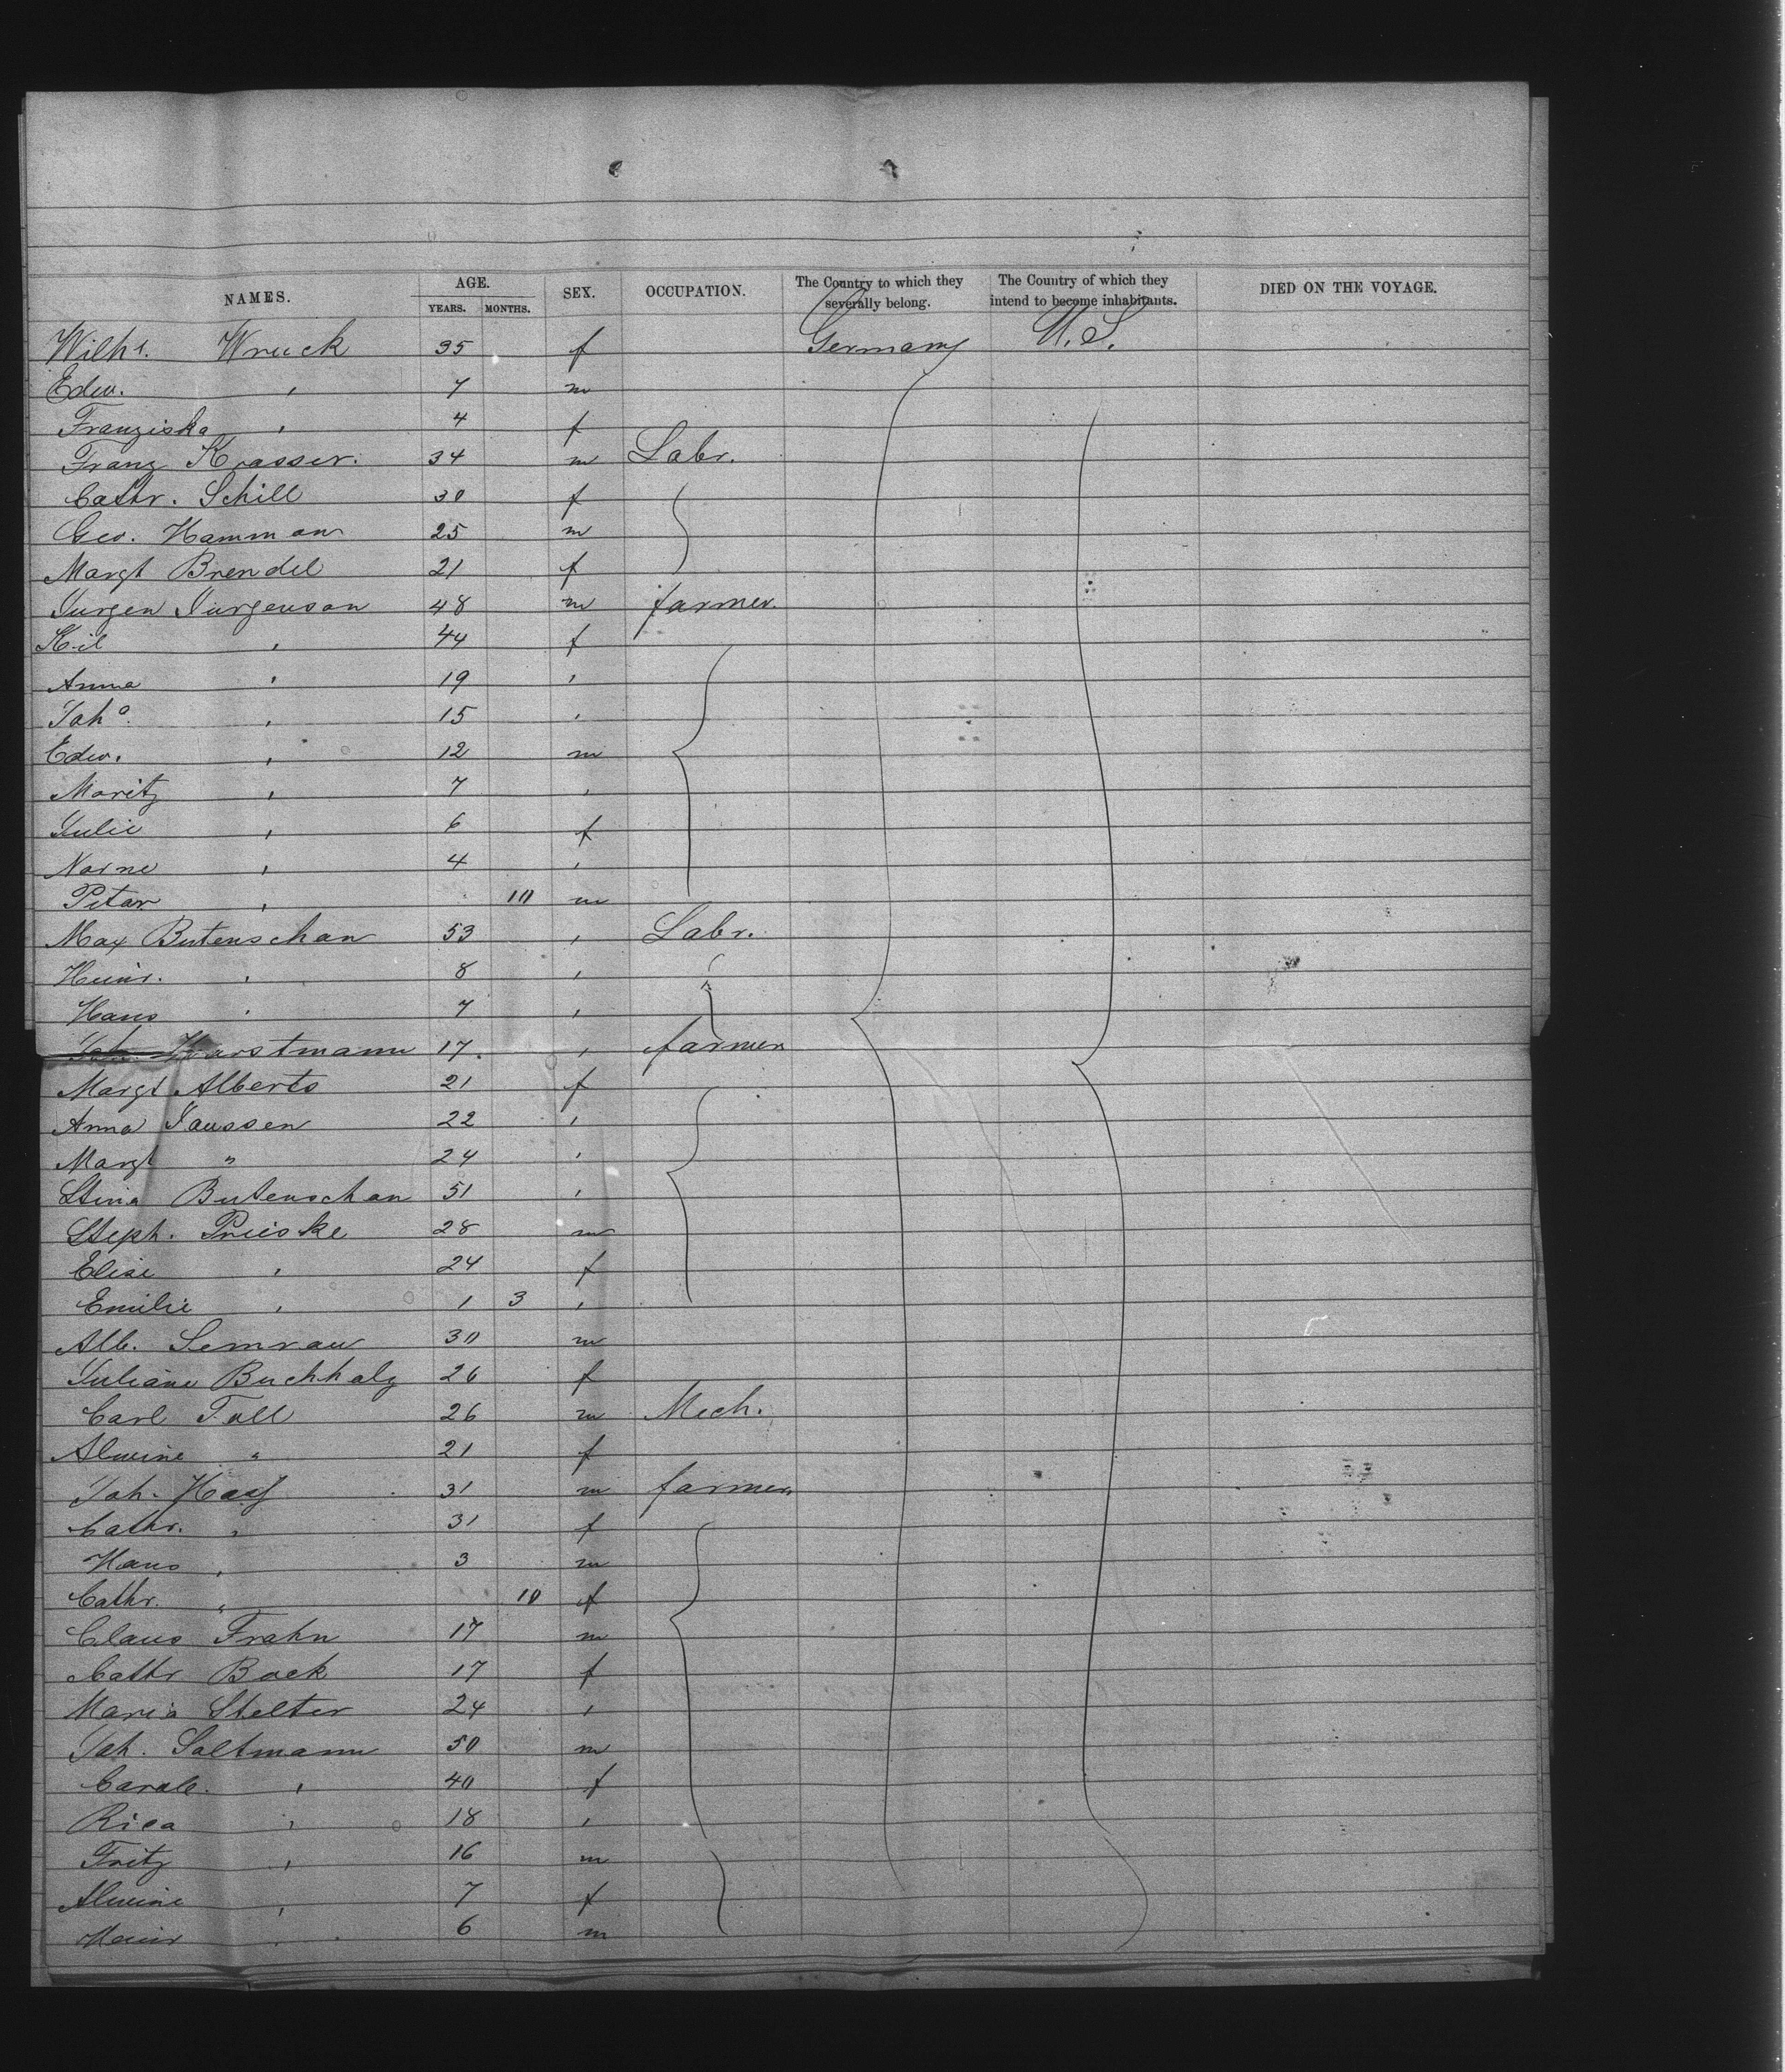 NAMES. AGE. YEARS. MONTHS. SEX. OCCUPATION. The Country to which they severally belong. The Country of which they intend to become inhabitants. DIED ON THE VOYAGE.
Wilhe. Wruck 35 f Germany U.S.
Edw. " 7 m
Franziska " 4 f
Franz Krasser. 34 m Labr.
Cathr. Schill 30 f
Geo. Hamman 25 m
Margt Brendel 21 f
Jurgen Jurgenson 48 m farmer.
Kil " 44 f
Anna " 19 "
Joha. " 15 "
Edw. " 12 m
Moritz " 7 "
Julie " 6 f
Norne " 4 "
Peter " 10 m
Max Butenschon 53 " Labr.
Heinr. " 8 "
Hans " 7 "
Horstmann 17. " farmer
Margt Alberts 21 f
Anna Janssen 22 "
Margt " 24 "
Stina Butenschon 51 "
Steph. Prieske 28 m
Elise " 24 f
Emilie " 1 3 "
Alb. Semrau 30 m
Juliane Buchholz 26 f
Carl Toll 26 m Mech.
Alwine " 21 f
Joh. Hass 31 m farmer
Cathr. " 31 f
Hans " 3 m
Cathr. " 10 f
Claus Frahn 17 m
Cathr Bock 17 f
Maria Stelter 24 "
Joh. Soltmann 50 m
Carol. " 40 f
Rica " 18 "
Fritz " 16 m
Alwine " 7 f
Heinr " 6 m